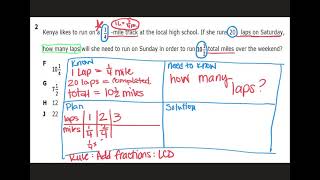 2
Kenya likes to run on a 1/4-mile track at the local high school. If she runs 20 laps on Saturday,
how many laps will she need to run on Sunday in order to run 10 1/2 total miles over the weekend?
F
G
H
J 22
Know
1 Lap = 1/4 mile
20 laps = completed
total = 10 1/2 miles
Need to Know
how many
laps?
Plan
laps | 1 | 2 | 3
miles | 1/4 | 1/4
Rule: Add fractions: LCD
Solution